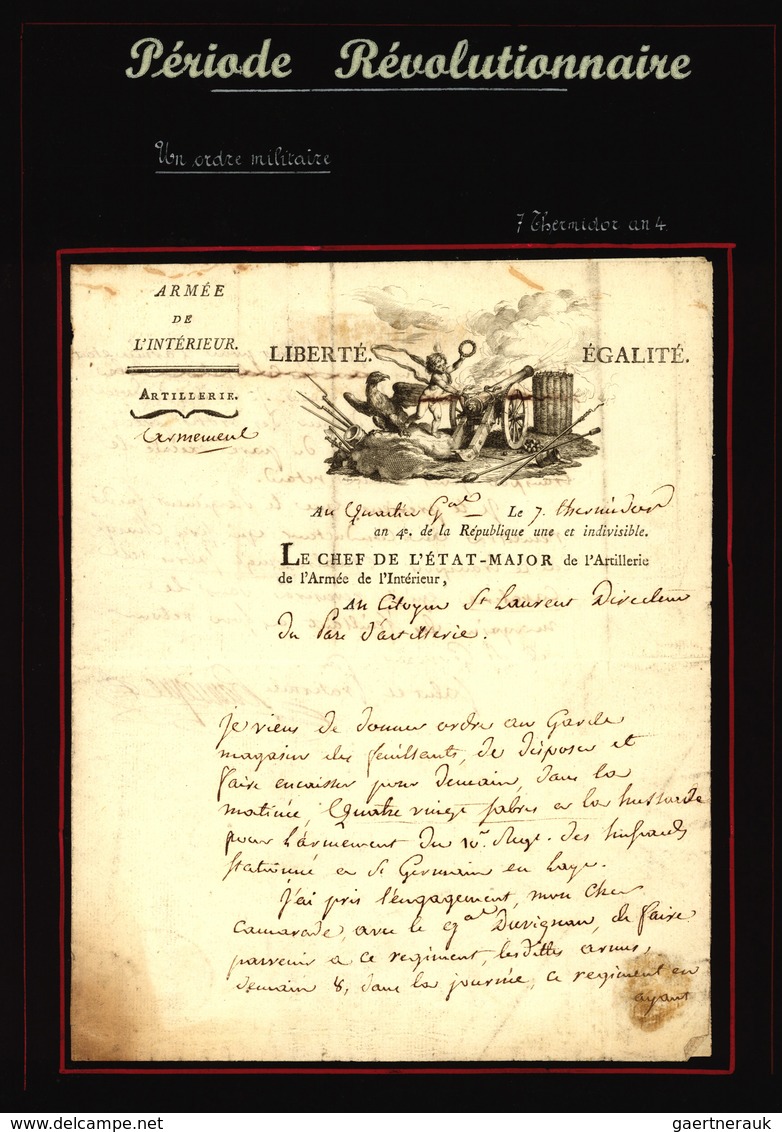 Période Révolutionnaire
Un ordre militaire
7 Thermidor an 4
ARMÉE
DE
L'INTÉRIEUR.
ARTILLERIE.
Armement
LIBERTÉ.
ÉGALITÉ.
Au Quartier Gal Le 7. thermidor
an 4e. de la République une et indivisible.
LE CHEF DE L'ÉTAT-MAJOR de l'Artillerie
de l'Armée de l'Intérieur,
Au Citoyen St Laurent Directeur
Du Parc d'artillerie.
Je viens de donner ordre au Garde
magasin des feuillants, de disposer et
faire encaisser pour demain, dans la
matinée, Quatre vingt sabres a la hussarde
pour l'armement du 10e. Regt. des
stationné a St Germain en Laye.
J'ai pris l'engagement, mon cher
Camarade, avec le gal Duvignau, de faire
parvenir a ce regiment, lesdittes armes,
demain 8, dans la journée, ce regiment en
ayant
delcampe.net
gaertnerauk